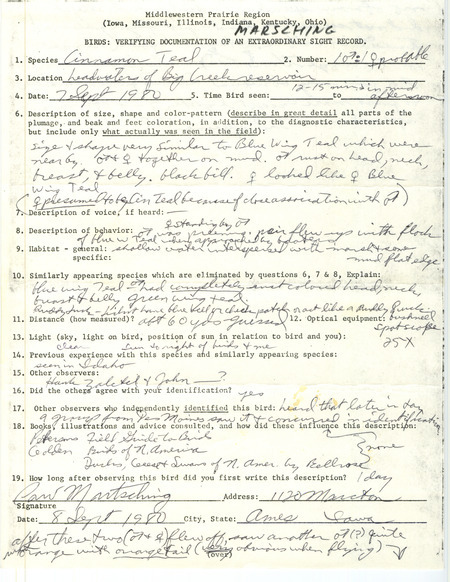 Middlewestern Prairie Region
(Iowa, Missouri, Illinois, Indiana, Kentucky, Ohio)
MARSCHING
BIRDS: VERIFYING DOCUMENTATION OF AN EXTRAORDINARY SIGHT RECORD.
1. Species Cinnamon Teal 2. Number: 1♂:1♀ probable
3. Location headwater of Big Creek reservoir
4. Date: 7 Sept 1980 5. Time Bird seen: 12-15 min in mid to afternoon
6. Description of size, shape and color-pattern (describe in great detail all parts of the
plumage, and beak and feet coloration, in addition, to the diagnostic characteristics,
but include only what actually was seen in the field):
size & shape very similar to Blue Wing Teal which were
nearby. ♂ & ♀ together on mud. ♂ rust on head, neck,
breast, & belly. black bill. ♀ looked like ♀ Blue
Wing Teal
(♀ presumed to be Cin Teal because of close association with ♂)
7. Description of voice, if heard: —
♀ standing by ♂
8. Description of behavior: ♂ was preening. pair flew up with flock
of blue w Teal when approached by boaters
9. Habitat - general: shallow water interspersed with marsh & some
specific: mud flat edge
10. Similarly appearing species which are eliminated by questions 6, 7 & 8, Explain:
blue wing Teal - ♂ had completely rust colored head, neck,
breast & belly green wing teal
Ruddy duck - didn't have blue bill or cheek patch, not like a Ruddy Duck -
11. Distance (how measured)? abt 60 yds guessed 12. Optical equipment: Bushnell
Spotscope
25X
13. Light (sky, light on bird, position of sun in relation to bird and you):
clear sun to right of birds & me
14. Previous experience with this species and similarly appearing species:
seen in Idaho
15. Other observers:
Hank Zaletel & John —?
16. Did the others agree with your identification? yes
17. Other observers who independently identified this bird: heard that later in day
a group from Des Moines saw it & concurred in identification
18. Books, illustrations and advice consulted, and how did these influence this description:
Petersons Field Guide to Birds
Golden Birds of N America
Ducks, Geese & Swans of N. Amer. by Bellrose
none
19. How long after observing this bird did you first write this description? 1 day
Paul Martsching Address: 1120 Marston
Signature
Date: 8 Sept 1980 City, State: Ames Iowa
after these two (♂ & ♀) flew off, saw another ♂(?) quite
orange with orange tail (very obvious when flying)
(over)